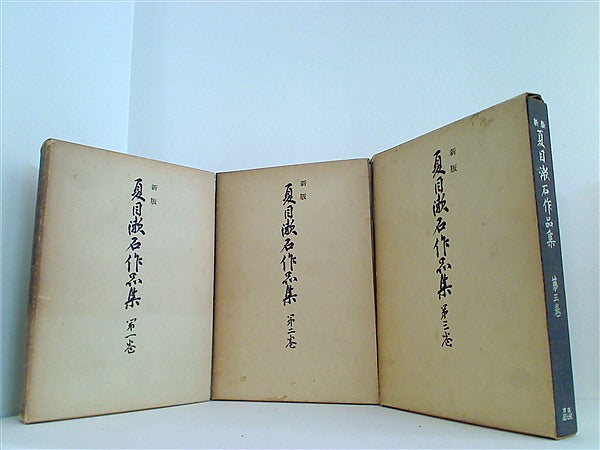 新版
夏目漱石作品集 第一巻
新版
夏目漱石作品集 第二巻
新版
夏目漱石作品集 第三巻
新版
夏目漱石作品集 第三巻